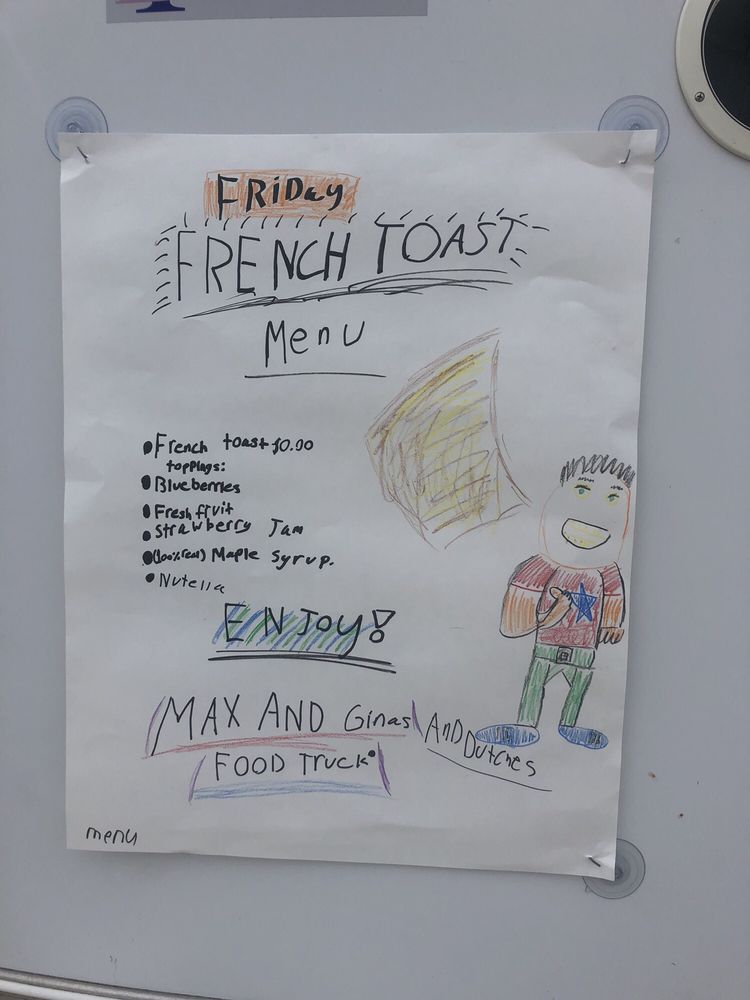 FRiDay
FRENCH TOAST
Menu
French toast $0.00
topplngs:
Blueberries
Fresh fruit
Strawberry Jam
(100% real) Maple Syrup.
Nutella
ENJoy!
MAX AND Ginas AnD Dutches
FOOD Truck
menu